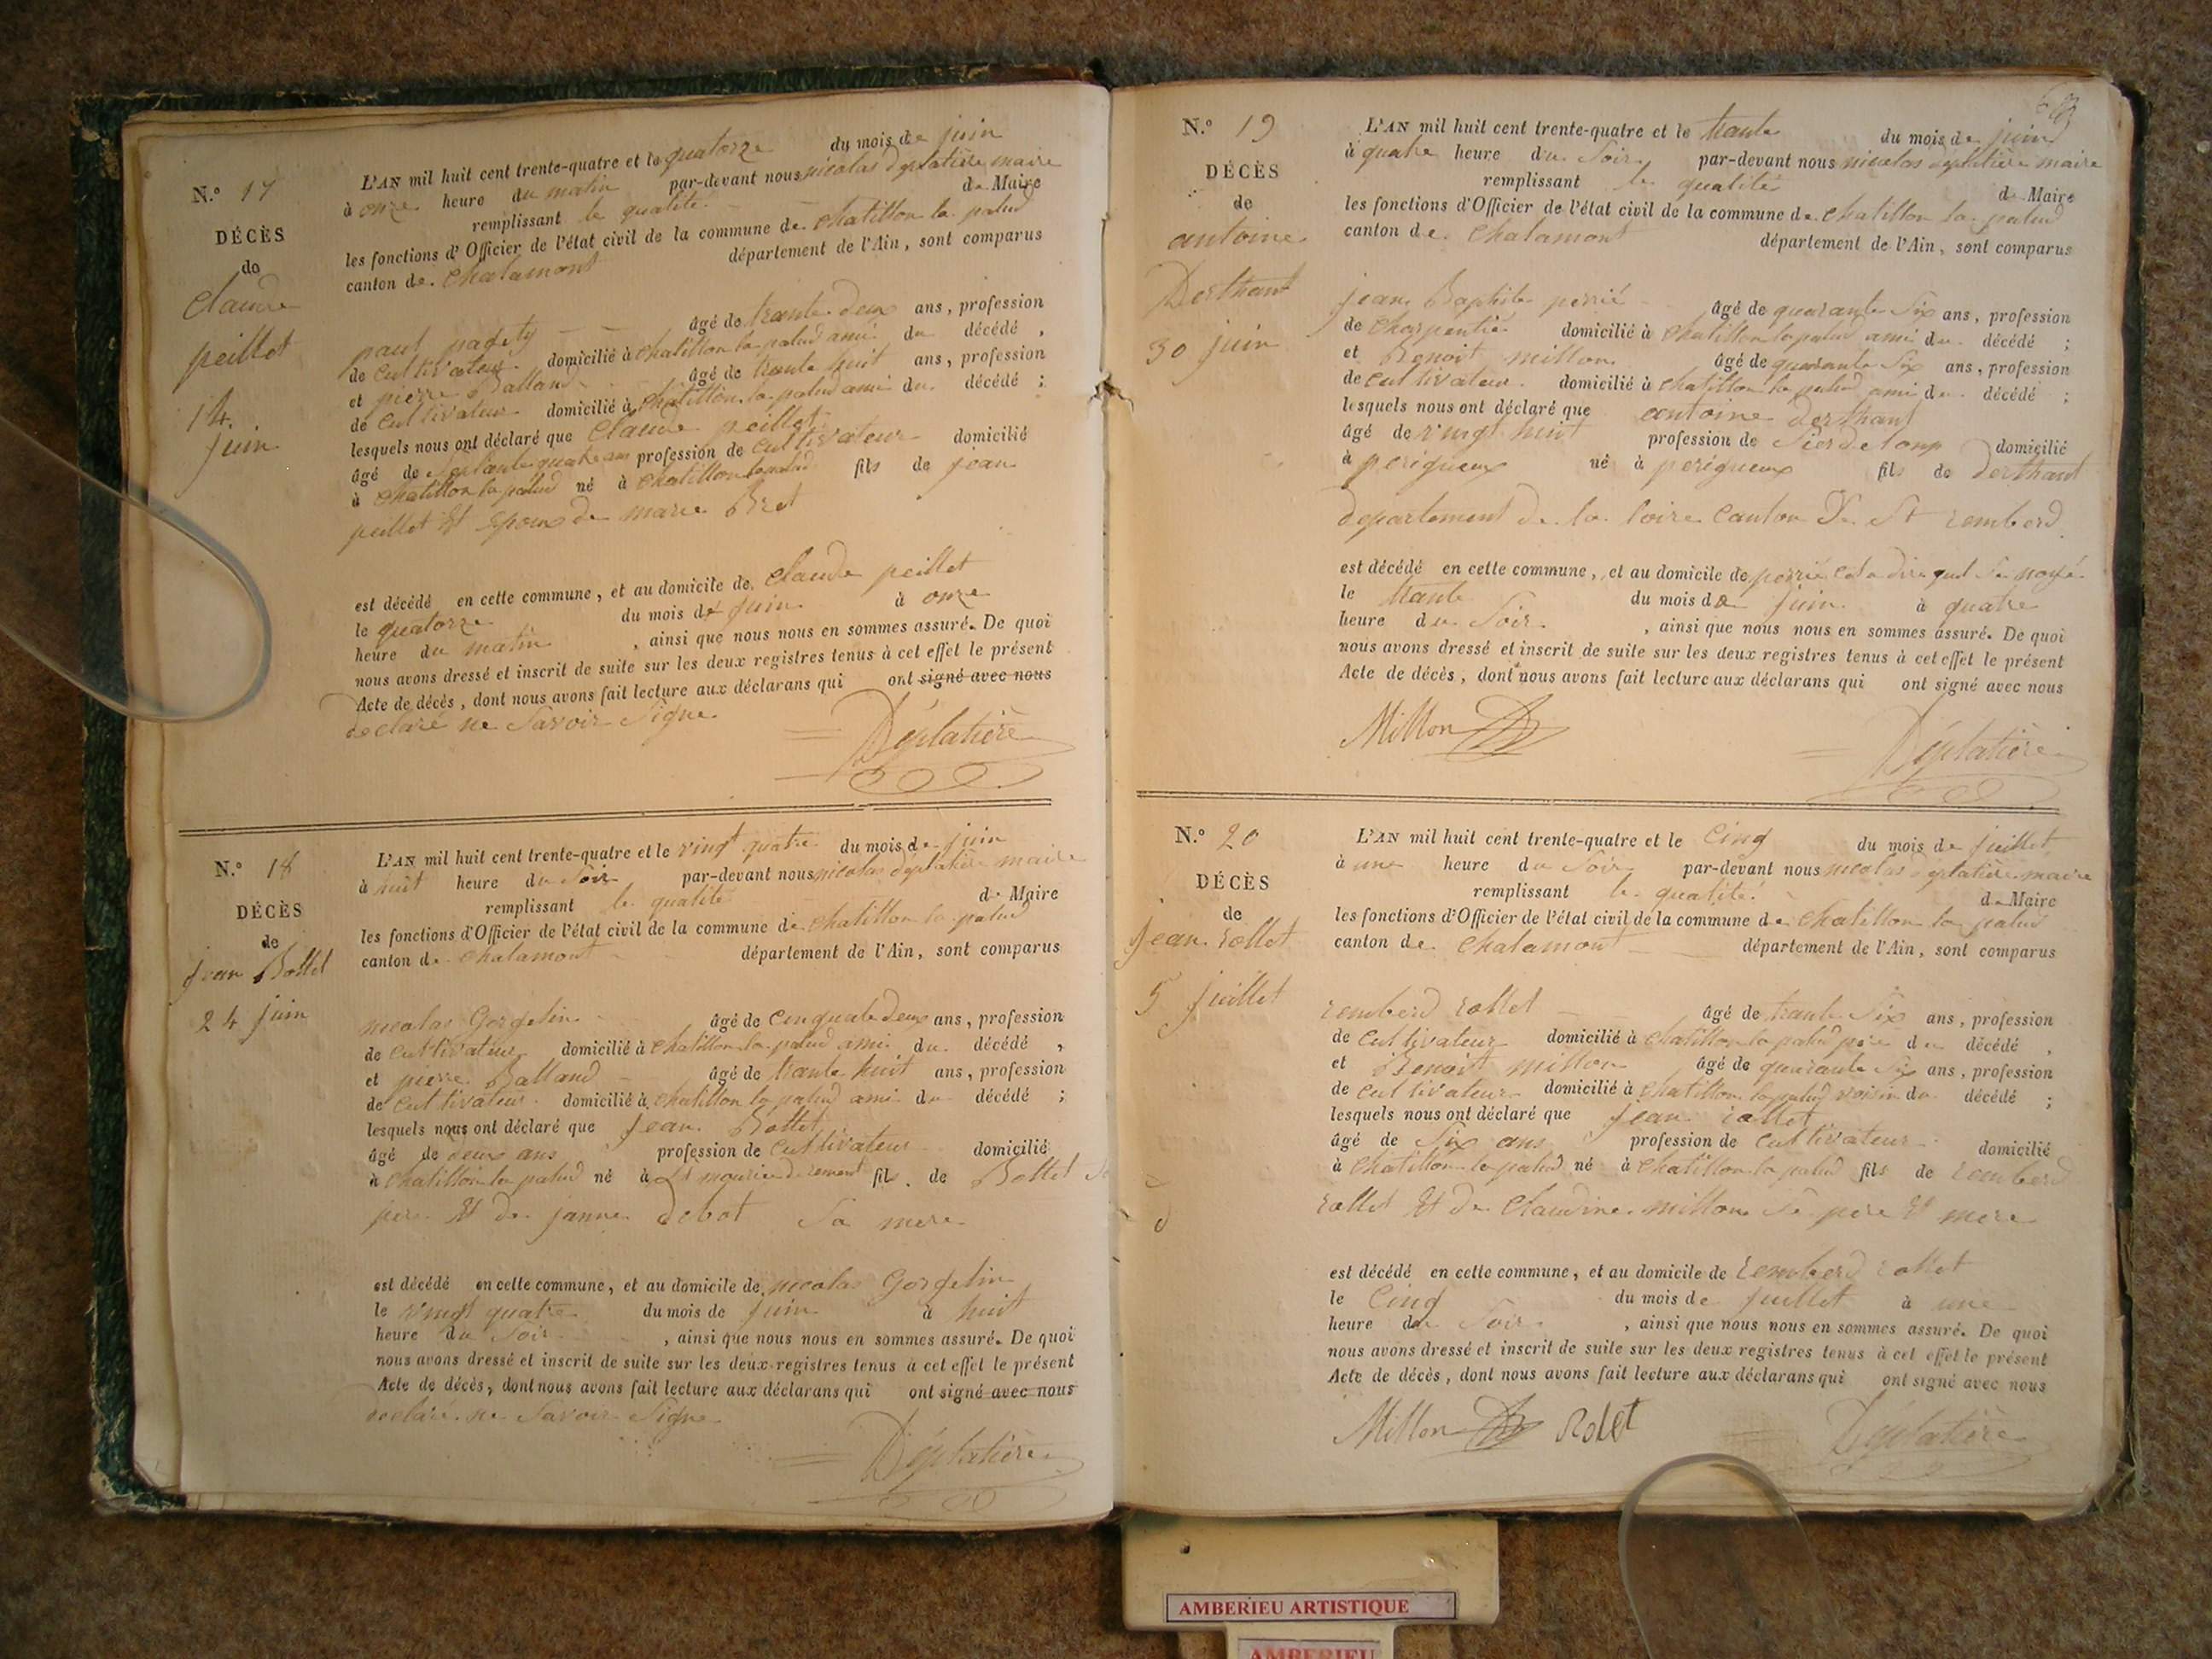 N.° 17
DÉCÈS
de
Claude
peillet
14
juin
L'AN mil huit cent trente-quatre et le quatorze du mois de juin
à onze heure du matin par-devant nous nicolas déplatière maire
remplissant la qualité de Maire
les fonctions d'Officier de l'état civil de la commune de chatillon la palud
canton de chalamont département de l'Ain, sont comparus
paul âgé de trante deux ans, profession
de cultivateur domicilié à chatillon la palud ami du décédé,
et pierre Balland âgé de trante huit ans, profession
de cultivateur domicilié à chatillon la palud ami du décédé;
lesquels nous ont déclaré que Claude peillet
âgé de septante quatre ans profession de cultivateur domicilié
à chatillon la palud né à chatillon la palud fils de jean
peillet Et Epoux de marie Bret
est décédé en cette commune, et au domicile de Claude peillet
le quatorze du mois de juin à onze
heure du matin, ainsi que nous nous en sommes assuré. De quoi
nous avons dressé et inscrit de suite sur les deux registres tenus à cet effet le présent
Acte de décès, dont nous avons fait lecture aux déclarans qui ont signé avec nous
declaré ne savoir signe
Déplatière
N.° 18
DÉCÈS
de
jean Bottet
24 juin
L'AN mil huit cent trente-quatre et le vingt quatre du mois de juin
à huit heure du soir par-devant nous nicolas déplatière maire
remplissant la qualité de Maire
les fonctions d'Officier de l'état civil de la commune de chatillon la palud
canton de chalamont département de l'Ain, sont comparus
nicolas Gorgelin âgé de cinquate deux ans, profession
de cultivateur domicilié à chatillon la palud ami du décédé,
et pierre Balland âgé de trante huit ans, profession
de cultivateur domicilié à chatillon la palud ami du décédé;
lesquels nous ont déclaré que jean Bottet
âgé de deux ans profession de cultivateur domicilié
à chatillon la palud né à st maurice de remens fils de Bottet
pere Et de janne debot sa mere
est décédé en cette commune, et au domicile de nicolas Gorgelin
le vingt quatre du mois de juin à huit
heure du soir, ainsi que nous nous en sommes assuré. De quoi
nous avons dressé et inscrit de suite sur les deux registres tenus à cet effet le présent
Acte de décès, dont nous avons fait lecture aux déclarans qui ont signé avec nous
declaré ne savoir signe
Déplatière
N.° 19
DÉCÈS
de
antoine
Derthant
30 juin
L'AN mil huit cent trente-quatre et le trante du mois de juin
à quatre heure du soir par-devant nous nicolas déplatière maire
remplissant la qualité de Maire
les fonctions d'Officier de l'état civil de la commune de chatillon la palud
canton de chalamont département de l'Ain, sont comparus
jean Baptiste perrié âgé de quarante six ans, profession
de charpentié domicilié à chatillon la palud ami du décédé;
et Benoit millon âgé de quarante six ans, profession
de cultivateur domicilié à chatillon la palud ami du décédé;
lesquels nous ont déclaré que antoine derthant
âgé de vingt huit profession de sierdelong domicilié
à perigneux né à perigneux fils de derthant
departement de la loire canton De St remberd
est décédé en cette commune, et au domicile de perrié cet a dire quil se noyé
le trante du mois de juin à quatre
heure du soir, ainsi que nous nous en sommes assuré. De quoi
nous avons dressé et inscrit de suite sur les deux registres tenus à cet effet le présent
Acte de décès, dont nous avons fait lecture aux déclarans qui ont signé avec nous
Millon Déplatière
N.° 20
DÉCÈS
de
jean rollet
5 juillet
L'AN mil huit cent trente-quatre et le cinq du mois de juillet
à une heure du soir par-devant nous nicolas déplatière maire
remplissant la qualité de Maire
les fonctions d'Officier de l'état civil de la commune de chatillon la palud
canton de chalamont département de l'Ain, sont comparus
remberd rollet âgé de trante six ans, profession
de cultivateur domicilié à chatillon la palud pere du décédé,
et Benoit millon âgé de quarante six ans, profession
de cultivateur domicilié à chatillon la palud voisin du décédé;
lesquels nous ont déclaré que jean rollet
âgé de six ans profession de cultivateur domicilié
à chatillon la palud né à chatillon la palud fils de remberd
rollet Et de Claudine millon se pere Et mere
est décédé en cette commune, et au domicile de remberd rollet
le cinq du mois de juillet à une
heure du soir, ainsi que nous nous en sommes assuré. De quoi
nous avons dressé et inscrit de suite sur les deux registres tenus à cet effet le présent
Acte de décès, dont nous avons fait lecture aux déclarans qui ont signé avec nous
Millon Rolet Déplatière
AMBERIEU ARTISTIQUE
AMBERIEU